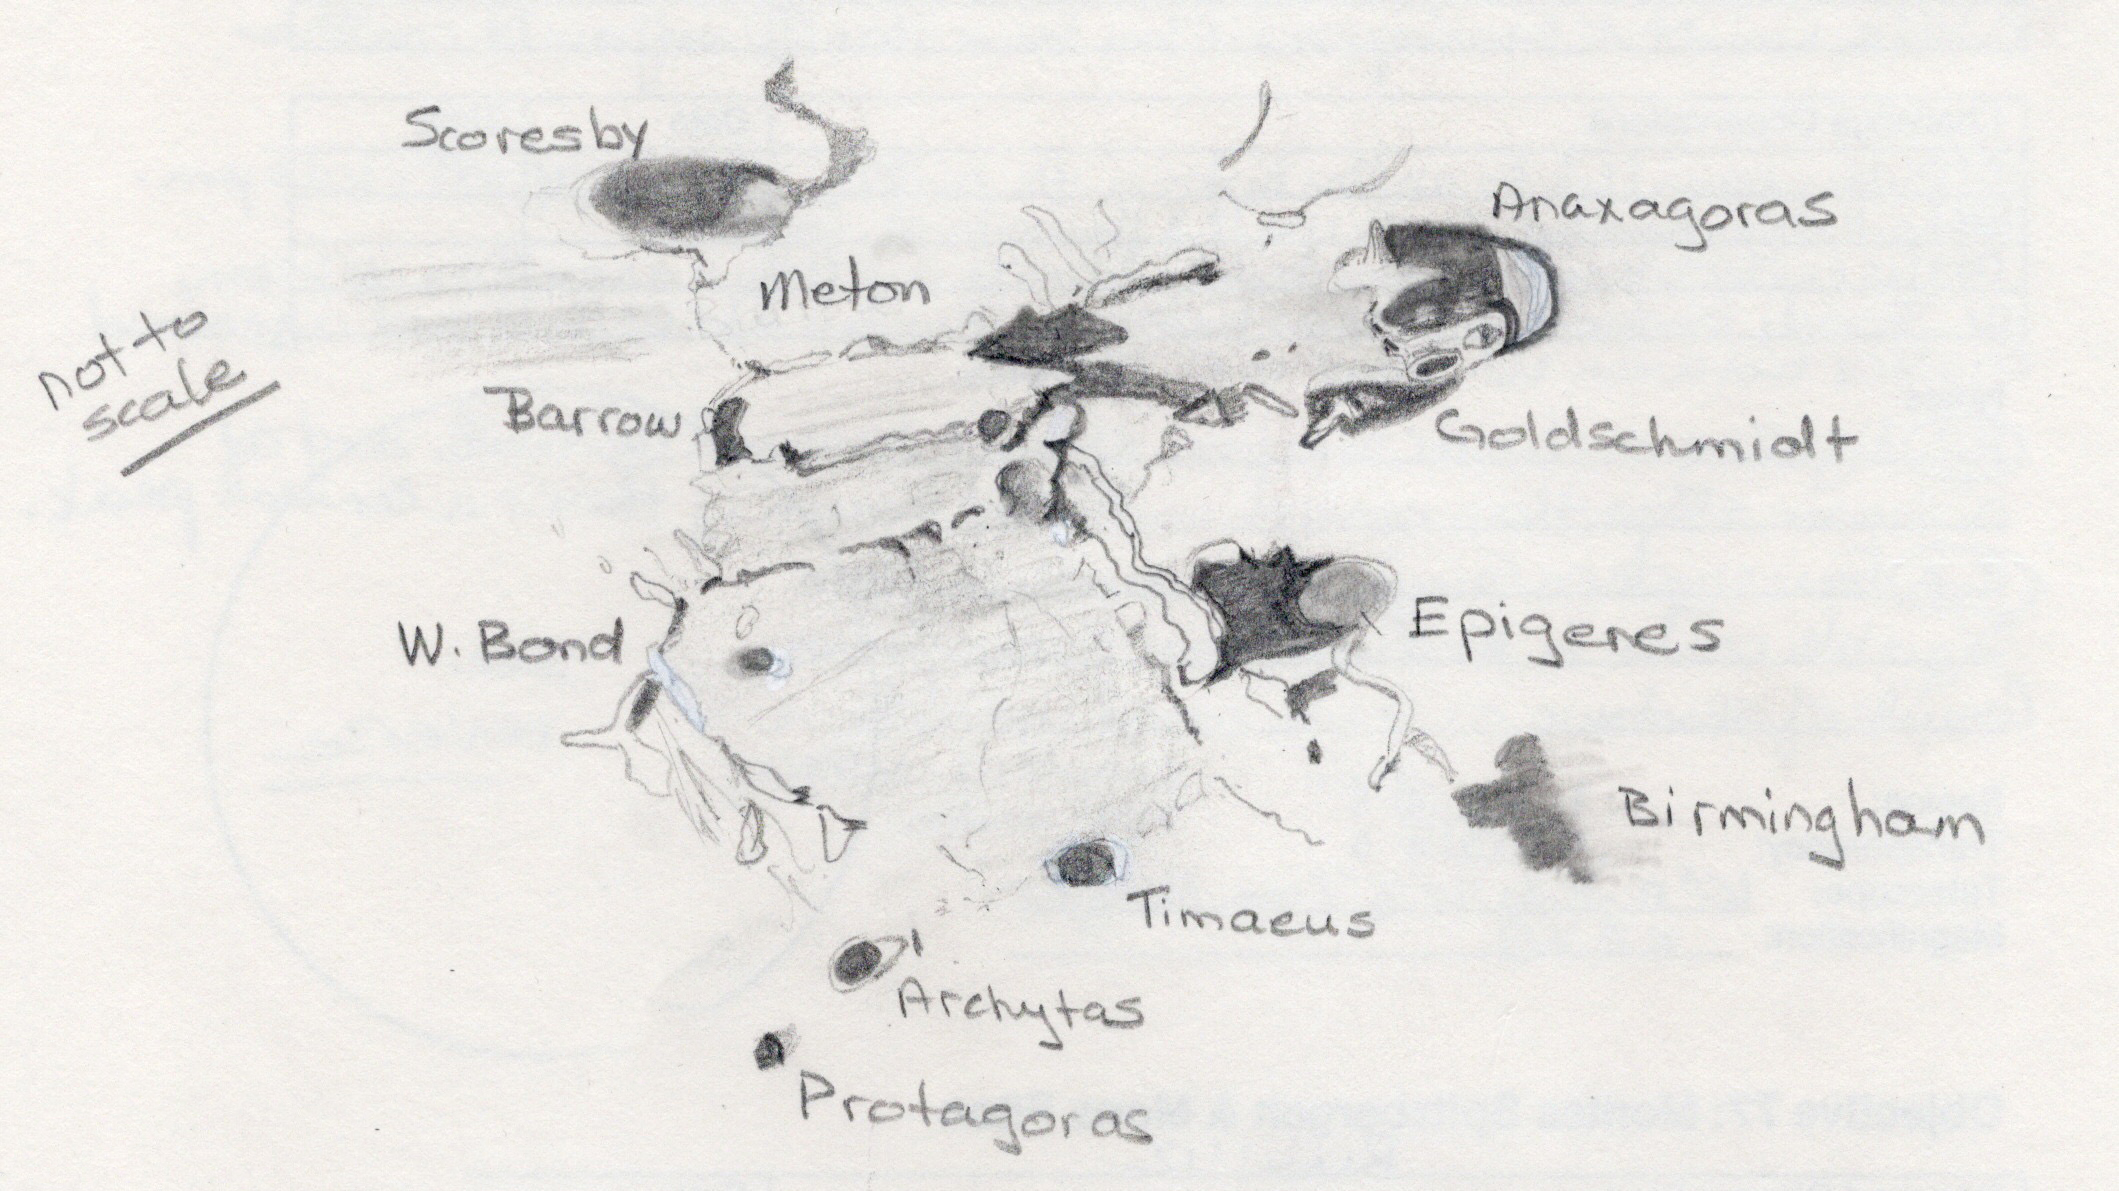 Scoresby
Anaxagoras
Meton
not to
scale
Barrow
Goldschmidt
W. Bond
Epigeres
Birmingham
Timaeus
Archytas
Protagoras